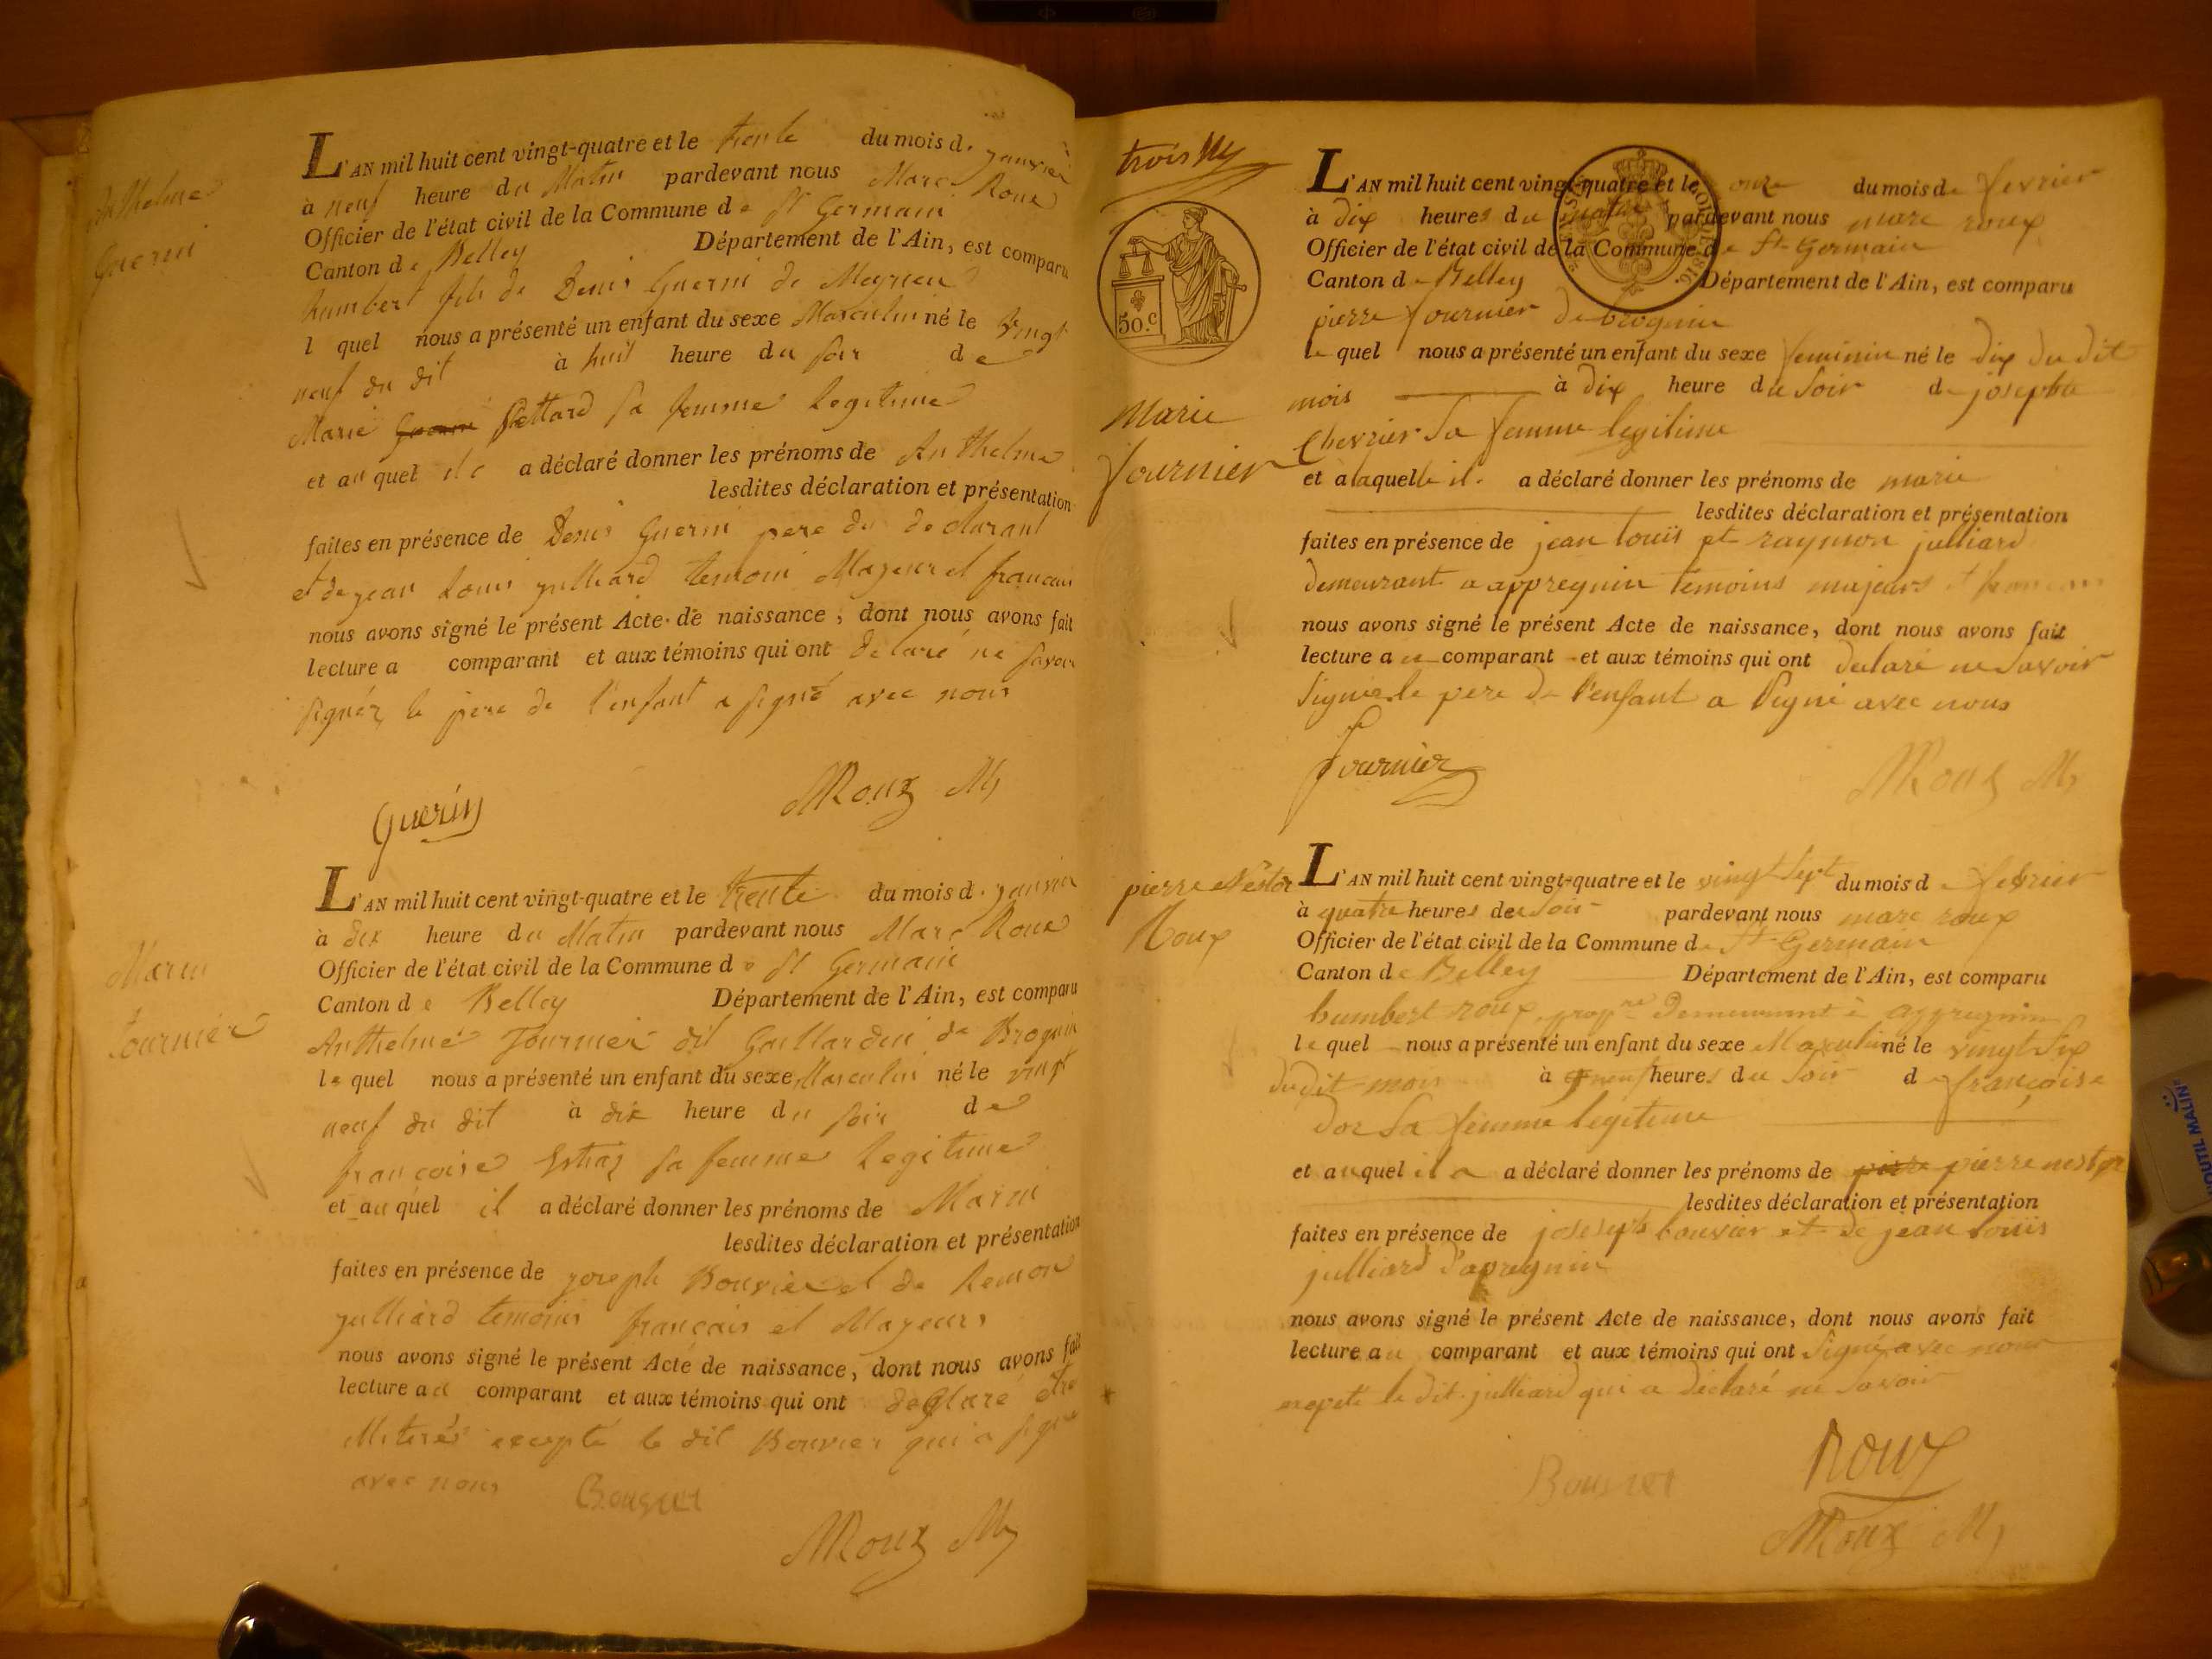 Anthelme
Guerin
L'AN mil huit cent vingt-quatre et le trente du mois d. janvier
à neuf heure du Matin pardevant nous Marc Roux
Officier de l'état civil de la Commune de St Germain
Canton de Belley Département de l'Ain, est comparu
humbert fils de Denis Guerin de Meyrieu
l quel nous a présenté un enfant du sexe Masculin né le vingt
neuf du dit à huit heure du soir de
Marie sa femme legitime
et au quel il a déclaré donner les prénoms de Anthelme
lesdites déclaration et présentation
faites en présence de Denis Guerin pere du declarant
et de jean Louis julliard temoin Majeur et francais
nous avons signé le présent Acte de naissance, dont nous avons fait
lecture a comparant et aux témoins qui ont declaré ne savoir
signér, le pere de l'enfant a signé avec nous
Guerin
MRoux
Marin
fournier
L'AN mil huit cent vingt-quatre et le trente du mois d. janvier
à dix heure du Matin pardevant nous Marc Roux
Officier de l'état civil de la Commune de St Germain
Canton de Belley Département de l'Ain, est comparu
Anthelme fournier dit Gaillardin de Brognin
le quel nous a présenté un enfant du sexe Masculin né le vingt
neuf du dit à dix heure du soir de
françoise sa femme Legitime
et au quel il a déclaré donner les prénoms de Marin
lesdites déclaration et présentation
faites en présence de joseph Bouvier et de Remon
julliard temoins français et Majeurs
nous avons signé le présent Acte de naissance, dont nous avons fait
lecture au comparant et aux témoins qui ont declaré etre
illiterés excepté le dit Bouvier qui a signé
avec nous Bouvier
MRoux
trois
50.c
Marie
fournier
L'AN mil huit cent vingt-quatre et le onze du mois de fevrier
à dix heures du matin pardevant nous marc roux
Officier de l'état civil de la Commune de St Germain
Canton de Belley Département de l'Ain, est comparu
pierre fournier de brognin
le quel nous a présenté un enfant du sexe feminin né le dix du dit
mois à dix heure du soir de josephte
Chevrier sa femme legitime
et a laquelle il. a déclaré donner les prénoms de marie
lesdites déclaration et présentation
faites en présence de jean louis et raymon julliard
demeurant a appregnin temoins majeurs et francais
nous avons signé le présent Acte de naissance, dont nous avons fait
lecture au comparant et aux témoins qui ont declaré ne savoir
signer le pere de l'enfant a signé avec nous
fournier
MRoux
pierre Nestor
Roux
L'AN mil huit cent vingt-quatre et le vingt sept du mois de fevrier
à quatre heures du soir pardevant nous marc roux
Officier de l'état civil de la Commune de St Germain
Canton de Belley Département de l'Ain, est comparu
humbert roux, propre demeurant à appregnin
le quel nous a présenté un enfant du sexe Masculin né le vingt six
dudit mois à neuf heures du soir de françoise
dor sa femme legitime
et auquel il a a déclaré donner les prénoms de pierre pierre nestor
lesdites déclaration et présentation
faites en présence de joseph bouvier et de jean louis
julliard d'apregnin
nous avons signé le présent Acte de naissance, dont nous avons fait
lecture au comparant et aux témoins qui ont signé avec nous
excepté le dit julliard qui a déclaré ne savoir
Bouvier
Roux
MRoux
OUTIL MALIN